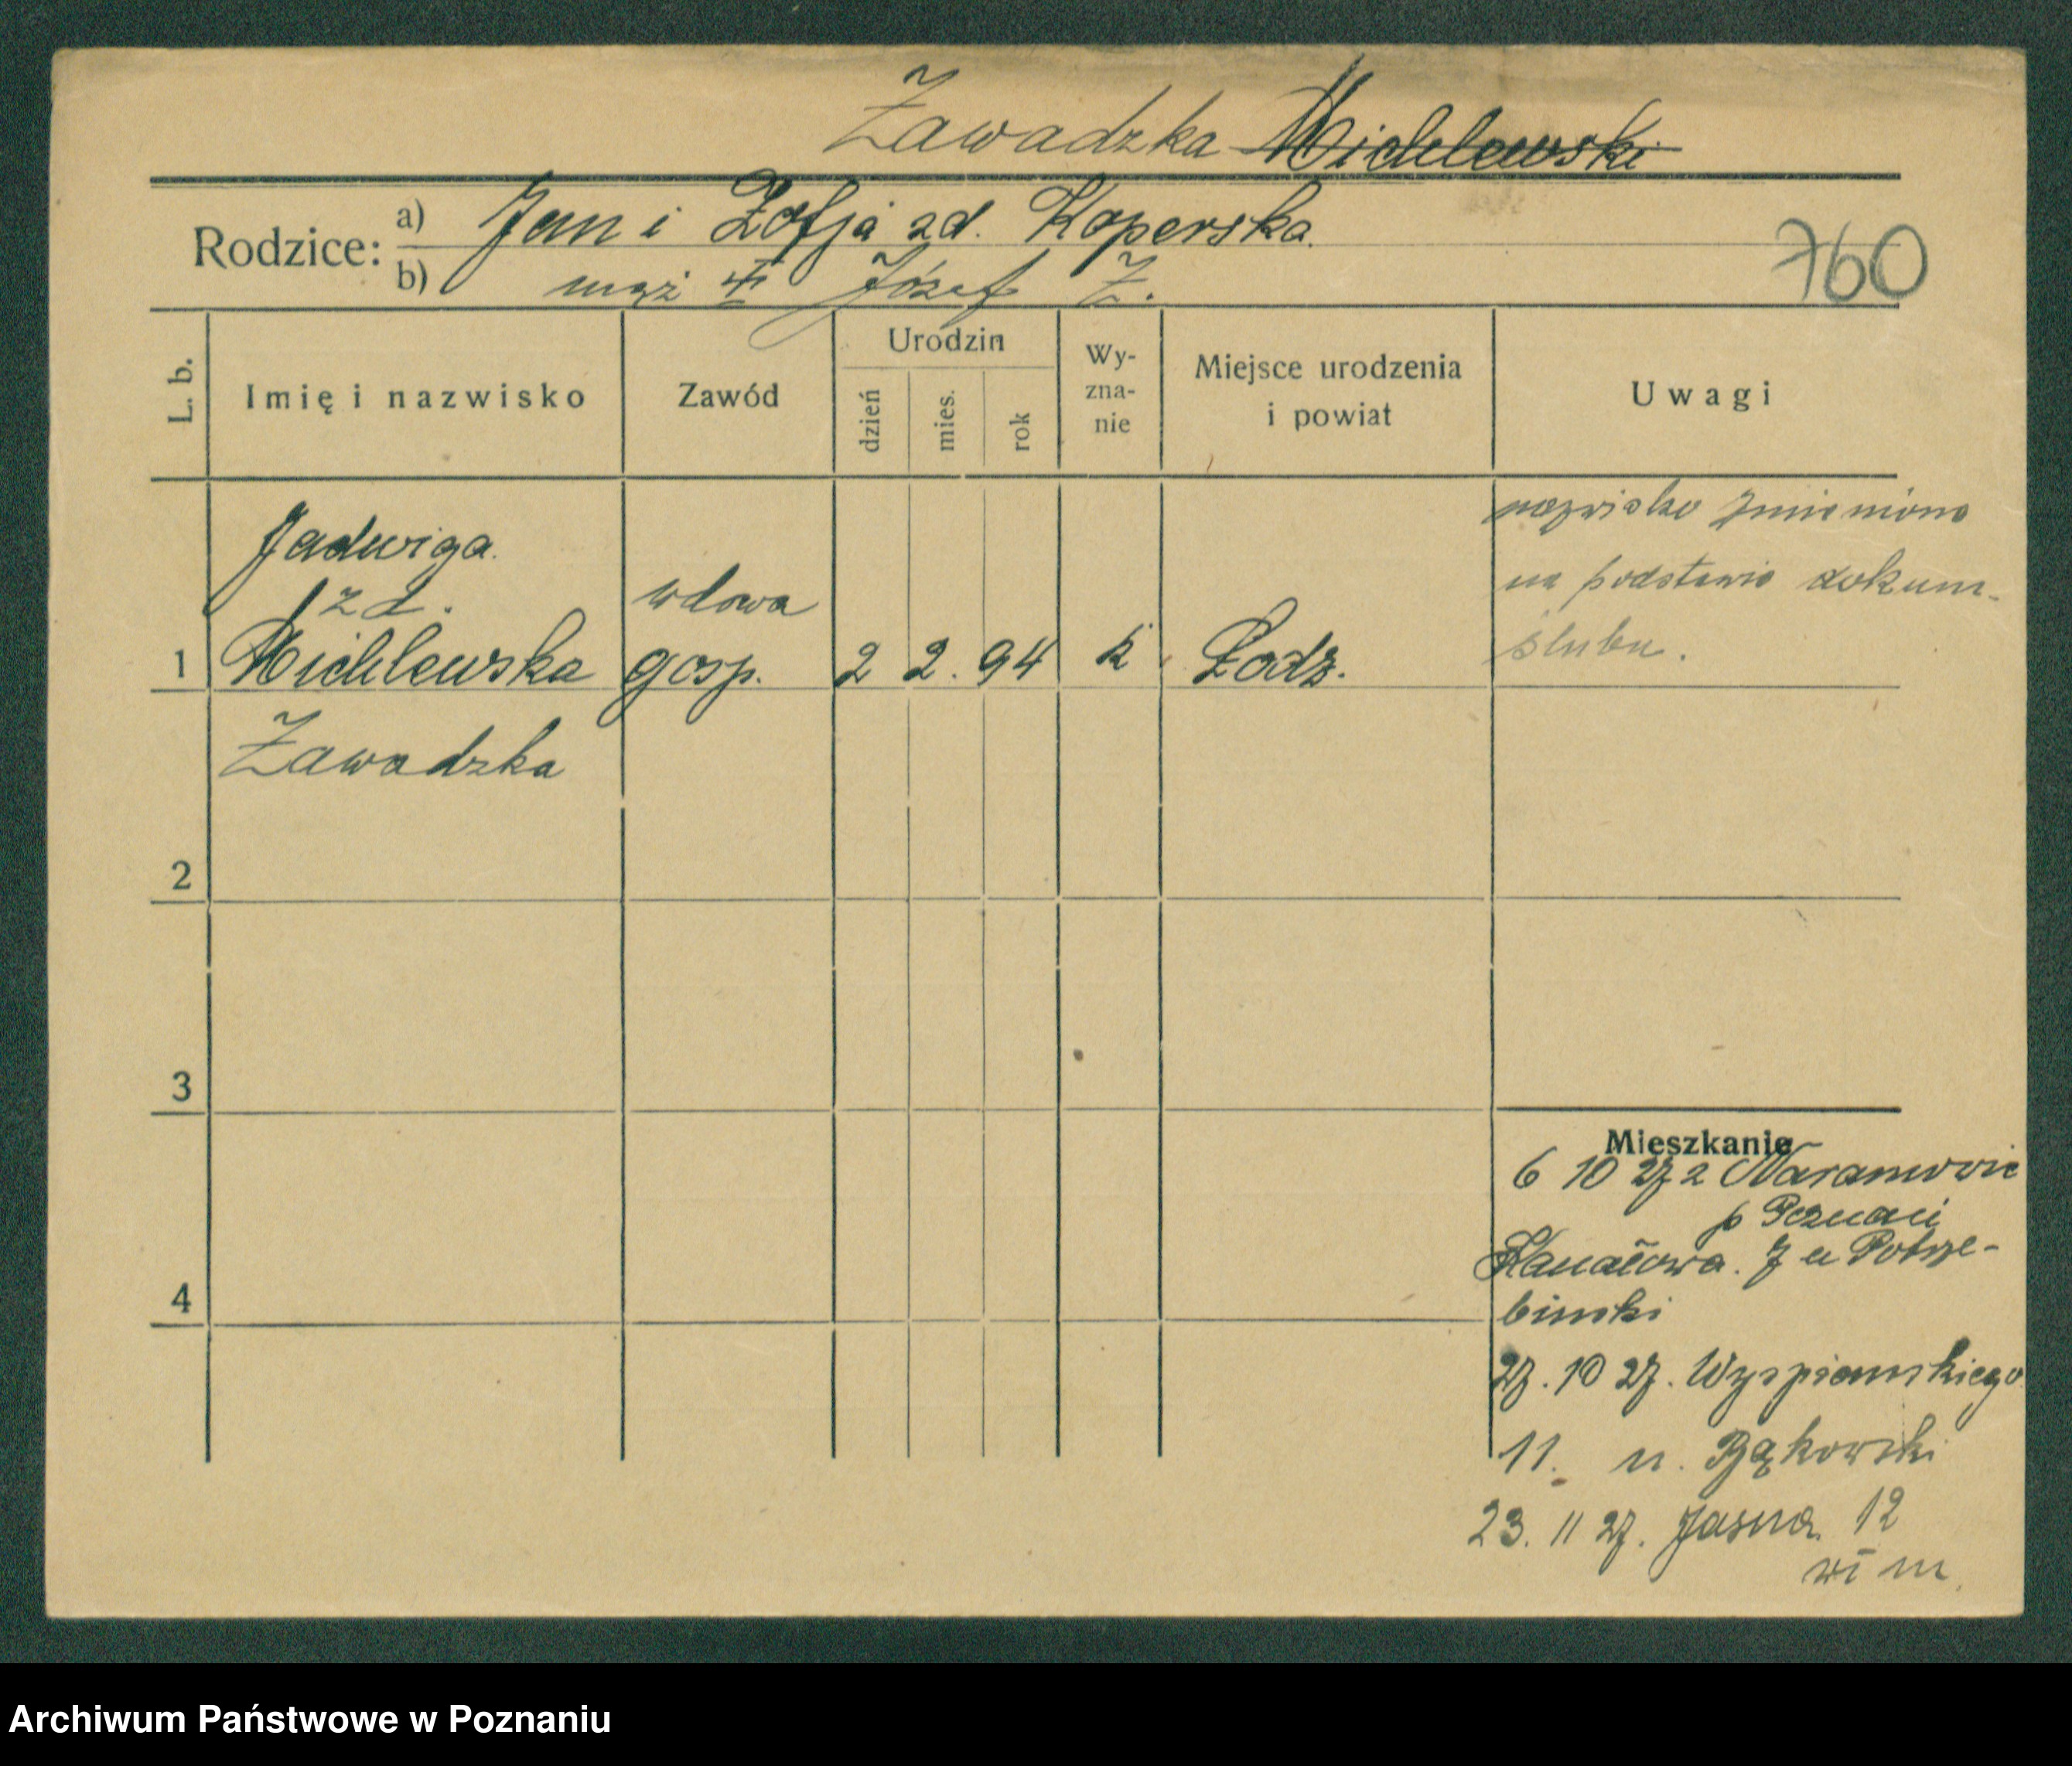 Zawadzka Michlewski
Rodzice: a) Jan i Zofja zd. Koperska.
b) mąż Józef Z.
760
L. b.
Imię i nazwisko
Zawód
Urodzin
dzień
mies.
rok
Wy-
zna-
nie
Miejsce urodzenia
i powiat
Uwagi
Jadwiga
zd.
1 Michlewska
Zawadzka
wdowa
gosp.
2 2. 94 k Łodz.
nazwisko zmieniono
na podstawie dokum.
ślubu.
2
3
4
Mieszkanie
6 10 27 z Naramowic
p Poznań
Kanałowa. 7 u Potrze-
binski
27. 10 27. Wyspianskiego
11. u. Bąkowski
23. 11 27. Jasna 12
m.
Archiwum Państwowe w Poznaniu